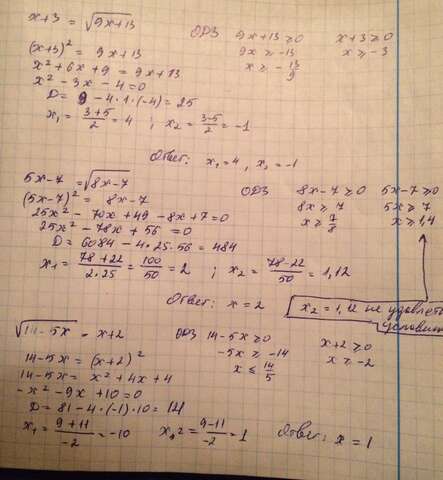 x+3 = √9x+13 ОДЗ 9x+13≥0 x+3≥0
(x+3)² = 9x+13 9x≥-13 x≥-3
x²+6x+9 = 9x+13 x≥-13/9
x²-3x-4=0
D= 9-4·1·(-4)=25
x₁= (3+5)/2 = 4 ; x₂= (3-5)/2 = -1
Ответ: x₁=4, x₂=-1
5x-7 = √8x-7 ОДЗ 8x-7≥0 5x-7≥0
(5x-7)² = 8x-7 8x≥7 5x≥7
25x²-70x+49-8x+7=0 x≥7/8 x≥1,4
25x²-78x+56=0
D= 6084-4·25·56=484
x₁= (78+22)/(2·25) = 100/50 = 2 ; x₂= (78-22)/50 = 1,12
Ответ: x=2
x₂=1,12 не удовлетв
условию
√14-5x = x+2 ОДЗ 14-5x≥0 x+2≥0
14-5x = (x+2)² -5x≥-14 x≥-2
14-5x = x²+4x+4 x≤14/5
-x²-9x+10=0
D= 81-4·(-1)·10=121
x₁= (9+11)/-2 = -10 x₂= (9-11)/-2 = 1 Ответ: x=1